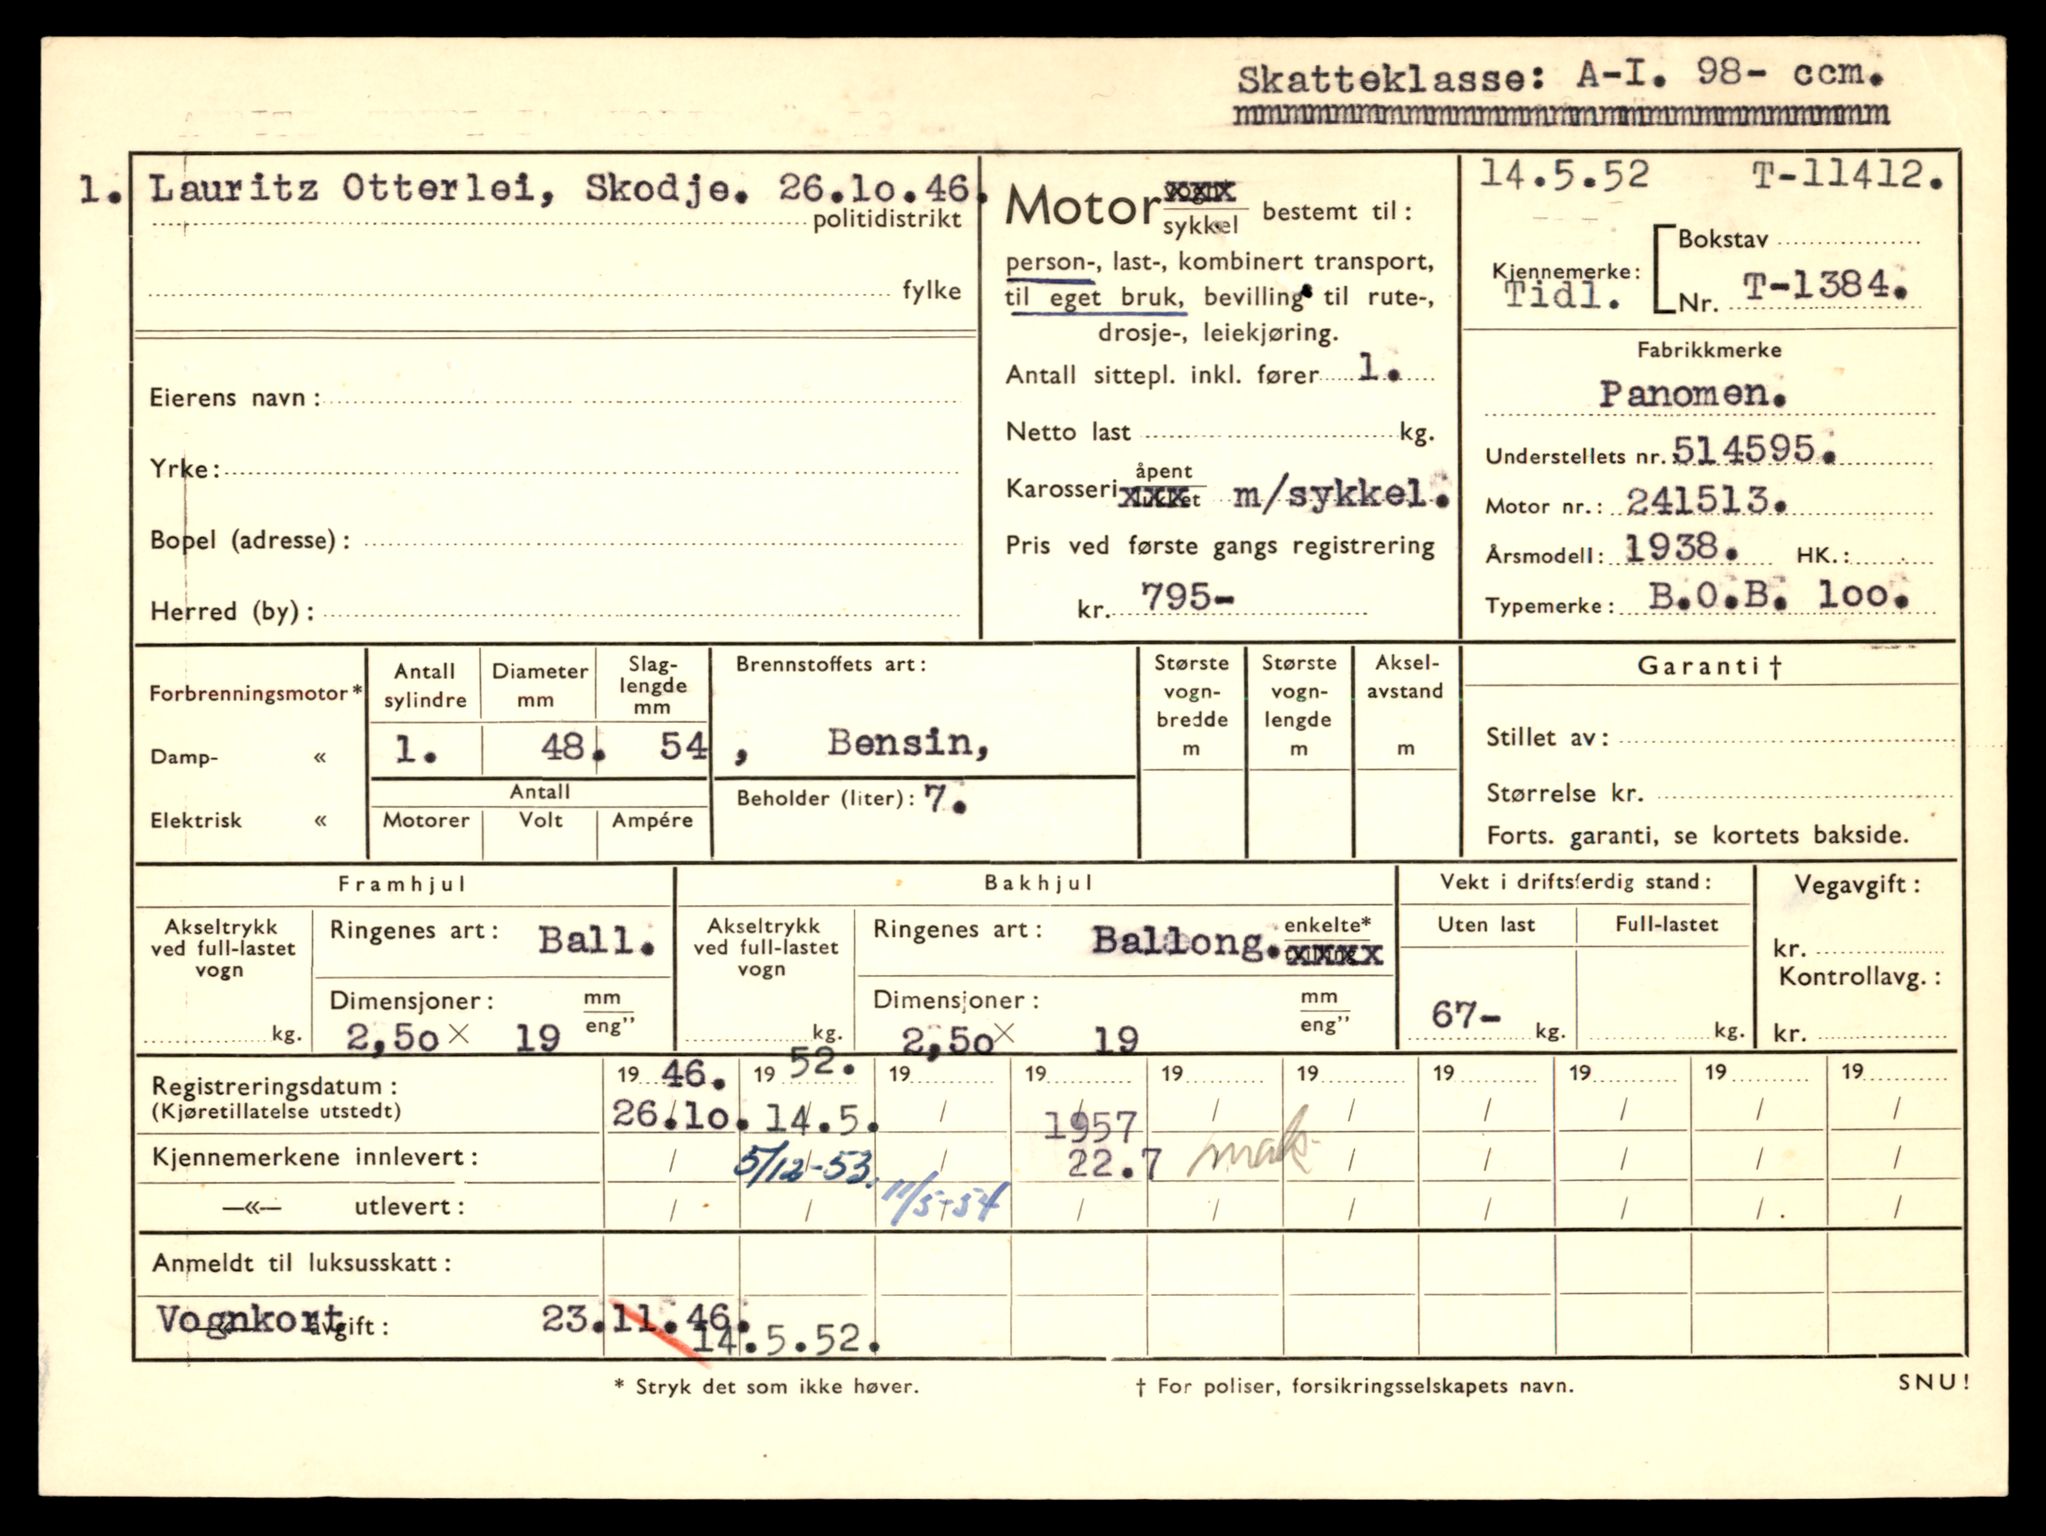 Skatteklasse: A-I. 98- ccm.
mmmmmmmmmmmmmmmmmmmmmmmmmmmm
1. Lauritz Otterlei, Skodje. 26.lo.46.
politidistrikt
fylke
Eierens navn:
Yrke:
Bopel (adresse):
Herred (by):
Motor vogn xxx
sykkel bestemt til:
person-, last-, kombinert transport,
til eget bruk, bevilling til rute-,
drosje-, leiekjøring.
Antall sittepl. inkl. fører 1.
Netto last kg.
Karosseri åpent
lukket xxx m/sykkel.
Pris ved første gangs registrering
kr. 795-
14.5.52 T-11412.
Kjennemerke: Bokstav
Tidl. Nr. T-1384.
Fabrikkmerke
Panomen.
Understellets nr. 514595.
Motor nr.: 241513.
Årsmodell: 1938. HK.:
Typemerke: B.O.B. loo.
Forbrenningsmotor*
Damp- «
Elektrisk «
Antall sylindre
Diameter mm
Slag-
lengde
mm
1. 48. 54,
Antall
Motorer Volt Ampére
Brennstoffets art:
Bensin,
Beholder (liter): 7.
Største
vogn-
bredde
m
Største
vogn-
lengde
m
Aksel-
avstand
m
Garanti †
Stillet av:
Størrelse kr.
Forts. garanti, se kortets bakside.
Framhjul
Akseltrykk
ved full-lastet
vogn
kg.
Ringenes art: Ball.
Dimensjoner: mm
eng”
2,5o × 19
Bakhjul
Akseltrykk
ved full-lastet
vogn
kg.
Ringenes art: Ballong. enkelte*
xxxx
Dimensjoner: mm
eng”
2,5o × 19
Vekt i driftsferdig stand:
Uten last Full-lastet
67- kg. kg.
Vegavgift:
kr.
Kontrollavg.:
kr.
Registreringsdatum: 19 46. 19 52. 19 19 19 19 19 19 19 19
(Kjøretillatelse utstedt) 26.lo. 14.5. / 1957 / / / / / /
Kjennemerkene innlevert: / 5/12-53. / 22.7 mak / / / / /
—«— utlevert: / / 11/5-54 / / / / / / /
Anmeldt til luksusskatt:
Vognkort —«— avgift: 23.11.46.
14.5.52.
* Stryk det som ikke høver.
† For poliser, forsikringsselskapets navn.
SNU!